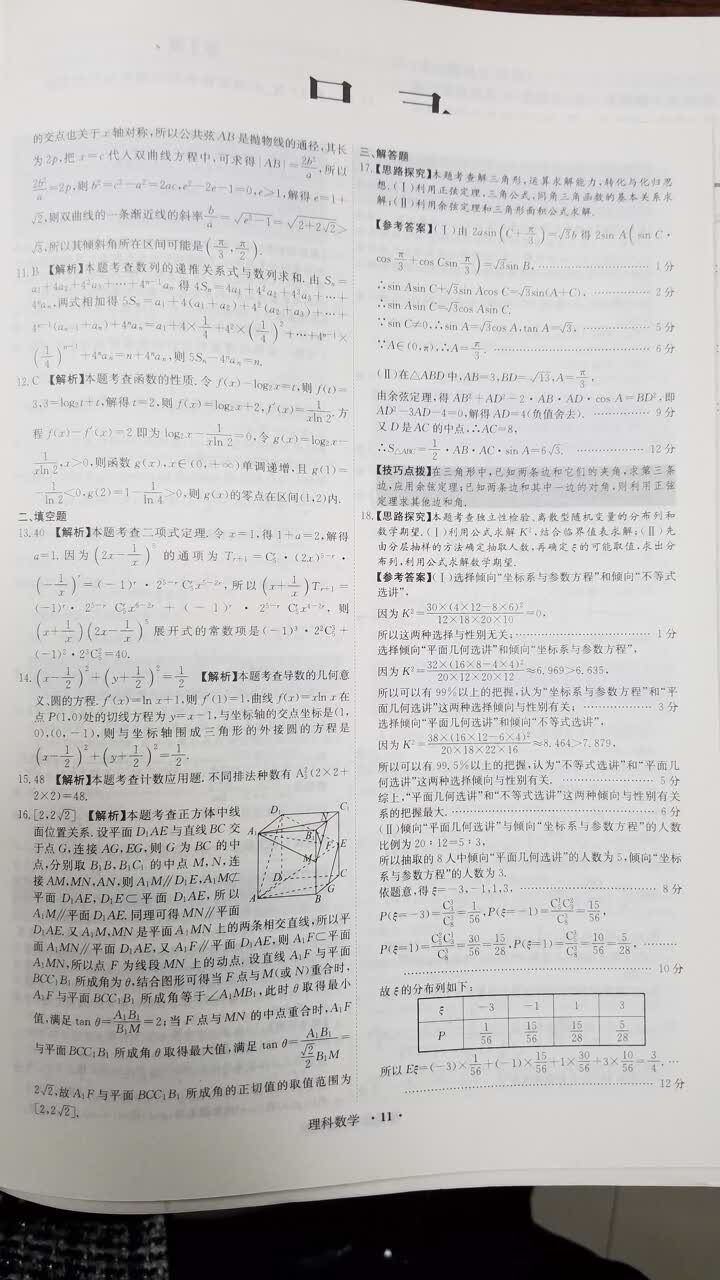 的交点也关于x轴对称,所以公共弦AB是抛物线的通径,其长
为2p,把x=c代入双曲线方程中,可求得|AB|=2b²/a,所以
2b²/a=2p,则b²=c²-a²=2ac,e²-2e-1=0,e>1,解得e=1+
√2,则双曲线的一条渐近线的斜率b/a=√(e²-1)=√(2+2√2)>
√3,所以其倾斜角所在区间可能是(π/3,π/2).
11.B 【解析】本题考查数列的递推关系式与数列求和.由Sₙ=
a₁+4a₂+4²a₃+…+4ⁿ⁻¹aₙ得4Sₙ=4a₁+4²a₂+4³a₃+…+
4ⁿaₙ,两式相加得5Sₙ=a₁+4(a₁+a₂)+4²(a₂+a₃)+…+
4ⁿ⁻¹(aₙ₋₁+aₙ)+4ⁿaₙ=a₁+4×1/4+4²×(1/4)²+…+4ⁿ⁻¹×
(1/4)ⁿ⁻¹+4ⁿaₙ=n+4ⁿaₙ,则5Sₙ-4ⁿaₙ=n.
12.C 【解析】本题考查函数的性质.令f(x)-log₂x=t,则f(t)=
3,3=log₂t+t,解得t=2,则f(x)=log₂x+2,f′(x)=1/(xln 2).方
程f(x)-f′(x)=2即为log₂x-1/(xln 2)=0,令g(x)=log₂x-
1/(xln 2),x>0,则函数g(x),x∈(0,+∞)单调递增,且g(1)=
-1/ln 2<0,g(2)=1-1/ln 4>0,则g(x)的零点在区间(1,2)内.
二、填空题
13.40 【解析】本题考查二项式定理.令x=1,得1+a=2,解得
a=1.因为(2x-1/x)⁵的通项为Tᵣ₊₁=C₅ʳ·(2x)⁵⁻ʳ·
(-1/x)ʳ=(-1)ʳ·2⁵⁻ʳC₅ʳx⁵⁻²ʳ,所以(x+1/x)Tᵣ₊₁=
(-1)ʳ·2⁵⁻ʳC₅ʳx⁶⁻²ʳ+(-1)ʳ·2⁵⁻ʳC₅ʳx⁴⁻²ʳ,则
(x+1/x)(2x-1/x)⁵展开式的常数项是(-1)³·2²C₅³+
(-1)²·2³C₅²=40.
14.(x-1/2)²+(y+1/2)²=1/2 【解析】本题考查导数的几何意
义、圆的方程.f′(x)=ln x+1,则f′(1)=1,曲线f(x)=xln x在
点P(1,0)处的切线方程为y=x-1,与坐标轴的交点坐标是(1,
0),(0,-1),则与坐标轴围成三角形的外接圆的方程是
(x-1/2)²+(y+1/2)²=1/2.
15.48 【解析】本题考查计数应用题.不同排法种数有A₃²(2×2+
2×2)=48.
16.[2,2√2] 【解析】本题考查正方体中线
面位置关系.设平面D₁AE与直线BC交
于点G,连接AG,EG,则G为BC的中
点,分别取B₁B,B₁C₁的中点M,N,连
接AM,MN,AN,则A₁M∥D₁E,A₁M⊄
平面D₁AE,D₁E⊂平面D₁AE,所以
A₁M∥平面D₁AE.同理可得MN∥平面
D₁AE.又A₁M,MN是平面A₁MN上的两条相交直线,所以平
面A₁MN∥平面D₁AE,又A₁F∥平面D₁AE,则A₁F⊂平面
A₁MN,所以点F为线段MN上的动点.设直线A₁F与平面
BCC₁B₁所成角为θ,结合图形可得当F点与M(或N)重合时,
A₁F与平面BCC₁B₁所成角等于∠A₁MB₁,此时θ取得最小
值,满足tan θ=A₁B₁/B₁M=2;当F点与MN的中点重合时,A₁F
与平面BCC₁B₁所成角θ取得最大值,满足tan θ=A₁B₁/(√2/2 B₁M)=
2√2,故A₁F与平面BCC₁B₁所成角的正切值的取值范围为
[2,2√2].
D₁
C₁
A₁
B₁
N
F
E
M
D
C
G
A
B
三、解答题
17.【思路探究】本题考查解三角形,运算求解能力,转化与化归思
想.(Ⅰ)利用正弦定理,三角公式,同角三角函数的基本关系求
解;(Ⅱ)利用余弦定理和三角形面积公式求解.
【参考答案】(Ⅰ)由2asin(C+π/3)=√3b得2sin A(sin C·
cos π/3+cos Csin π/3)=√3sin B,………………1分
∴sin Asin C+√3sin Acos C=√3sin(A+C),…………2分
∴sin Asin C=√3cos Asin C.
∵sin C≠0,∴sin A=√3cos A,tan A=√3,……………5分
∵A∈(0,π),∴A=π/3.……………………6分
(Ⅱ)在△ABD中,AB=3,BD=√13,A=π/3,
由余弦定理,得AB²+AD²-2·AB·AD·cos A=BD²,即
AD²-3AD-4=0,解得AD=4(负值舍去).……………9分
又D是AC的中点,∴AC=8,
∴S△ABC=1/2·AB·AC·sin A=6√3.………………12分
【技巧点拨】在三角形中,已知两条边和它们的夹角,求第三条
边,应用余弦定理;已知两条边和其中一边的对角,则利用正弦
定理求其他边和角.
18.【思路探究】本题考查独立性检验、离散型随机变量的分布列和
数学期望.(Ⅰ)利用公式求解K²,结合临界值表求解;(Ⅱ)先
由分层抽样的方法确定抽取人数,再确定ξ的可能取值,求出分
布列,利用公式求解数学期望.
【参考答案】(Ⅰ)选择倾向“坐标系与参数方程”和倾向“不等式
选讲”,
因为K²=30×(4×12-8×6)²/(12×18×20×10)=0,
所以这两种选择与性别无关,…………………1分
选择倾向“平面几何选讲”和倾向“坐标系与参数方程”,
因为K²=32×(16×8-4×4)²/(20×12×20×12)≈6.969>6.635,
所以可以有99%以上的把握,认为“坐标系与参数方程”和“平
面几何选讲”这两种选择倾向与性别有关;…………3分
选择倾向“平面几何选讲”和倾向“不等式选讲”,
因为K²=38×(16×12-6×4)²/(20×18×22×16)≈8.464>7.879,
所以可以有99.5%以上的把握,认为“不等式选讲”和“平面几
何选讲”这两种选择倾向与性别有关.………………5分
综上,“平面几何选讲”和“不等式选讲”这两种倾向与性别有关
系的把握最大.……………………6分
(Ⅱ)倾向“平面几何选讲”与倾向“坐标系与参数方程”的人数
比例为20∶12=5∶3,
所以抽取的8人中倾向“平面几何选讲”的人数为5,倾向“坐标
系与参数方程”的人数为3.
依题意,得ξ=-3,-1,1,3,……………………8分
P(ξ=-3)=C₃³/C₈³=1/56,P(ξ=-1)=C₅¹C₃²/C₈³=15/56,
P(ξ=1)=C₅²C₃¹/C₈³=30/56=15/28,P(ξ=3)=C₅³/C₈³=10/56=5/28,………
……………………10分
故ξ的分布列如下:
ξ -3 -1 1 3
P 1/56 15/56 15/28 5/28
所以Eξ=(-3)×1/56+(-1)×15/56+1×30/56+3×10/56=3/4.…
……………………12分
理科数学 ·11·